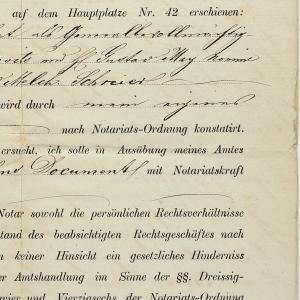 auf dem Hauptplatze Nr. 42 erschienen:
als Generalbevollmächtig
und H Gustav May
Schreier
wird durch mein eigenes
nach Notariats-Ordnung konstatirt.
ersucht, ich solle in Ausübung meines Amtes
Document mit Notariatskraft
Notar sowohl die persönlichen Rechtsverhältnisse
stand des beabsichtigten Rechtsgeschäftes nach
n keiner Hinsicht ein gesetzliches Hinderniss
er Amtshandlung im Sinne der §§. Dreissig-
arier und Vierzigsechs der Notariats-Ordnung